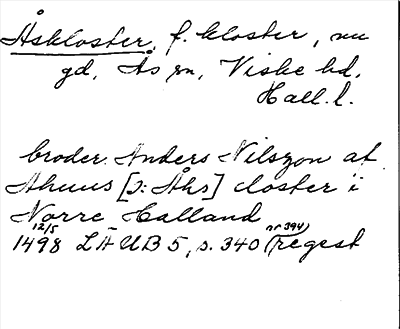 Åskloster, f. kloster, nu
gd, Ås sn, Viske hd,
Hall. l.
broder Anders Nilszon af
Ahuus [ɔ: Åhs] closter i
Norre Halland
12/5 1498 LÄUB 5, s. 340 (regest nr 394)